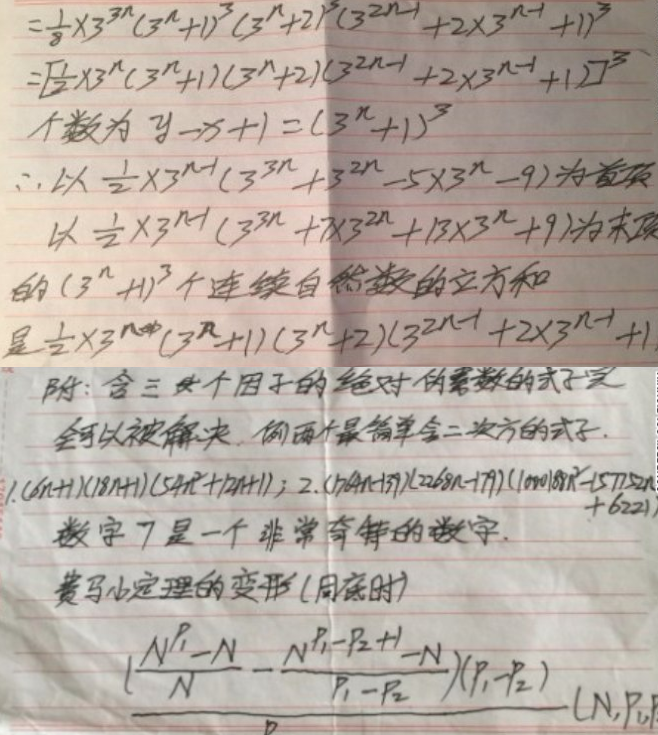 =1/8×3^{3n}(3^n+1)^3(3^n+2)^3(3^{2n-1}+2×3^{n-1}+1)^3
=[1/2×3^n(3^n+1)(3^n+2)(3^{2n-1}+2×3^{n-1}+1)]^3
个数为 y-x+1=(3^n+1)^3
∴以 1/2×3^{n-1}(3^{3n}+3^{2n}-5×3^n-9)为首项
以 1/2×3^{n-1}(3^{3n}+7×3^{2n}+13×3^n+9)为末项
的(3^n+1)^3个连续自然数的立方和
是1/2×3^n(3^n+1)(3^n+2)(3^{2n-1}+2×3^{n-1}+1
附:含三个因子的绝对伪素数的式子完
全可以被解决.例两个最简单含二次方的式子.
1.(6n+1)(18n+1)(54n^2+12n+1);2.(1764n-139)(2268n-179)(1000188n^2-157752n
+6221)
数字7是一个非常奇特的数字.
费马小定理的变形(同底时)
((N^{P_1}-N)/N-(N^{P_1-P_2+1}-N)/(P_1-P_2))(P_1-P_2)
(N,P_1,P